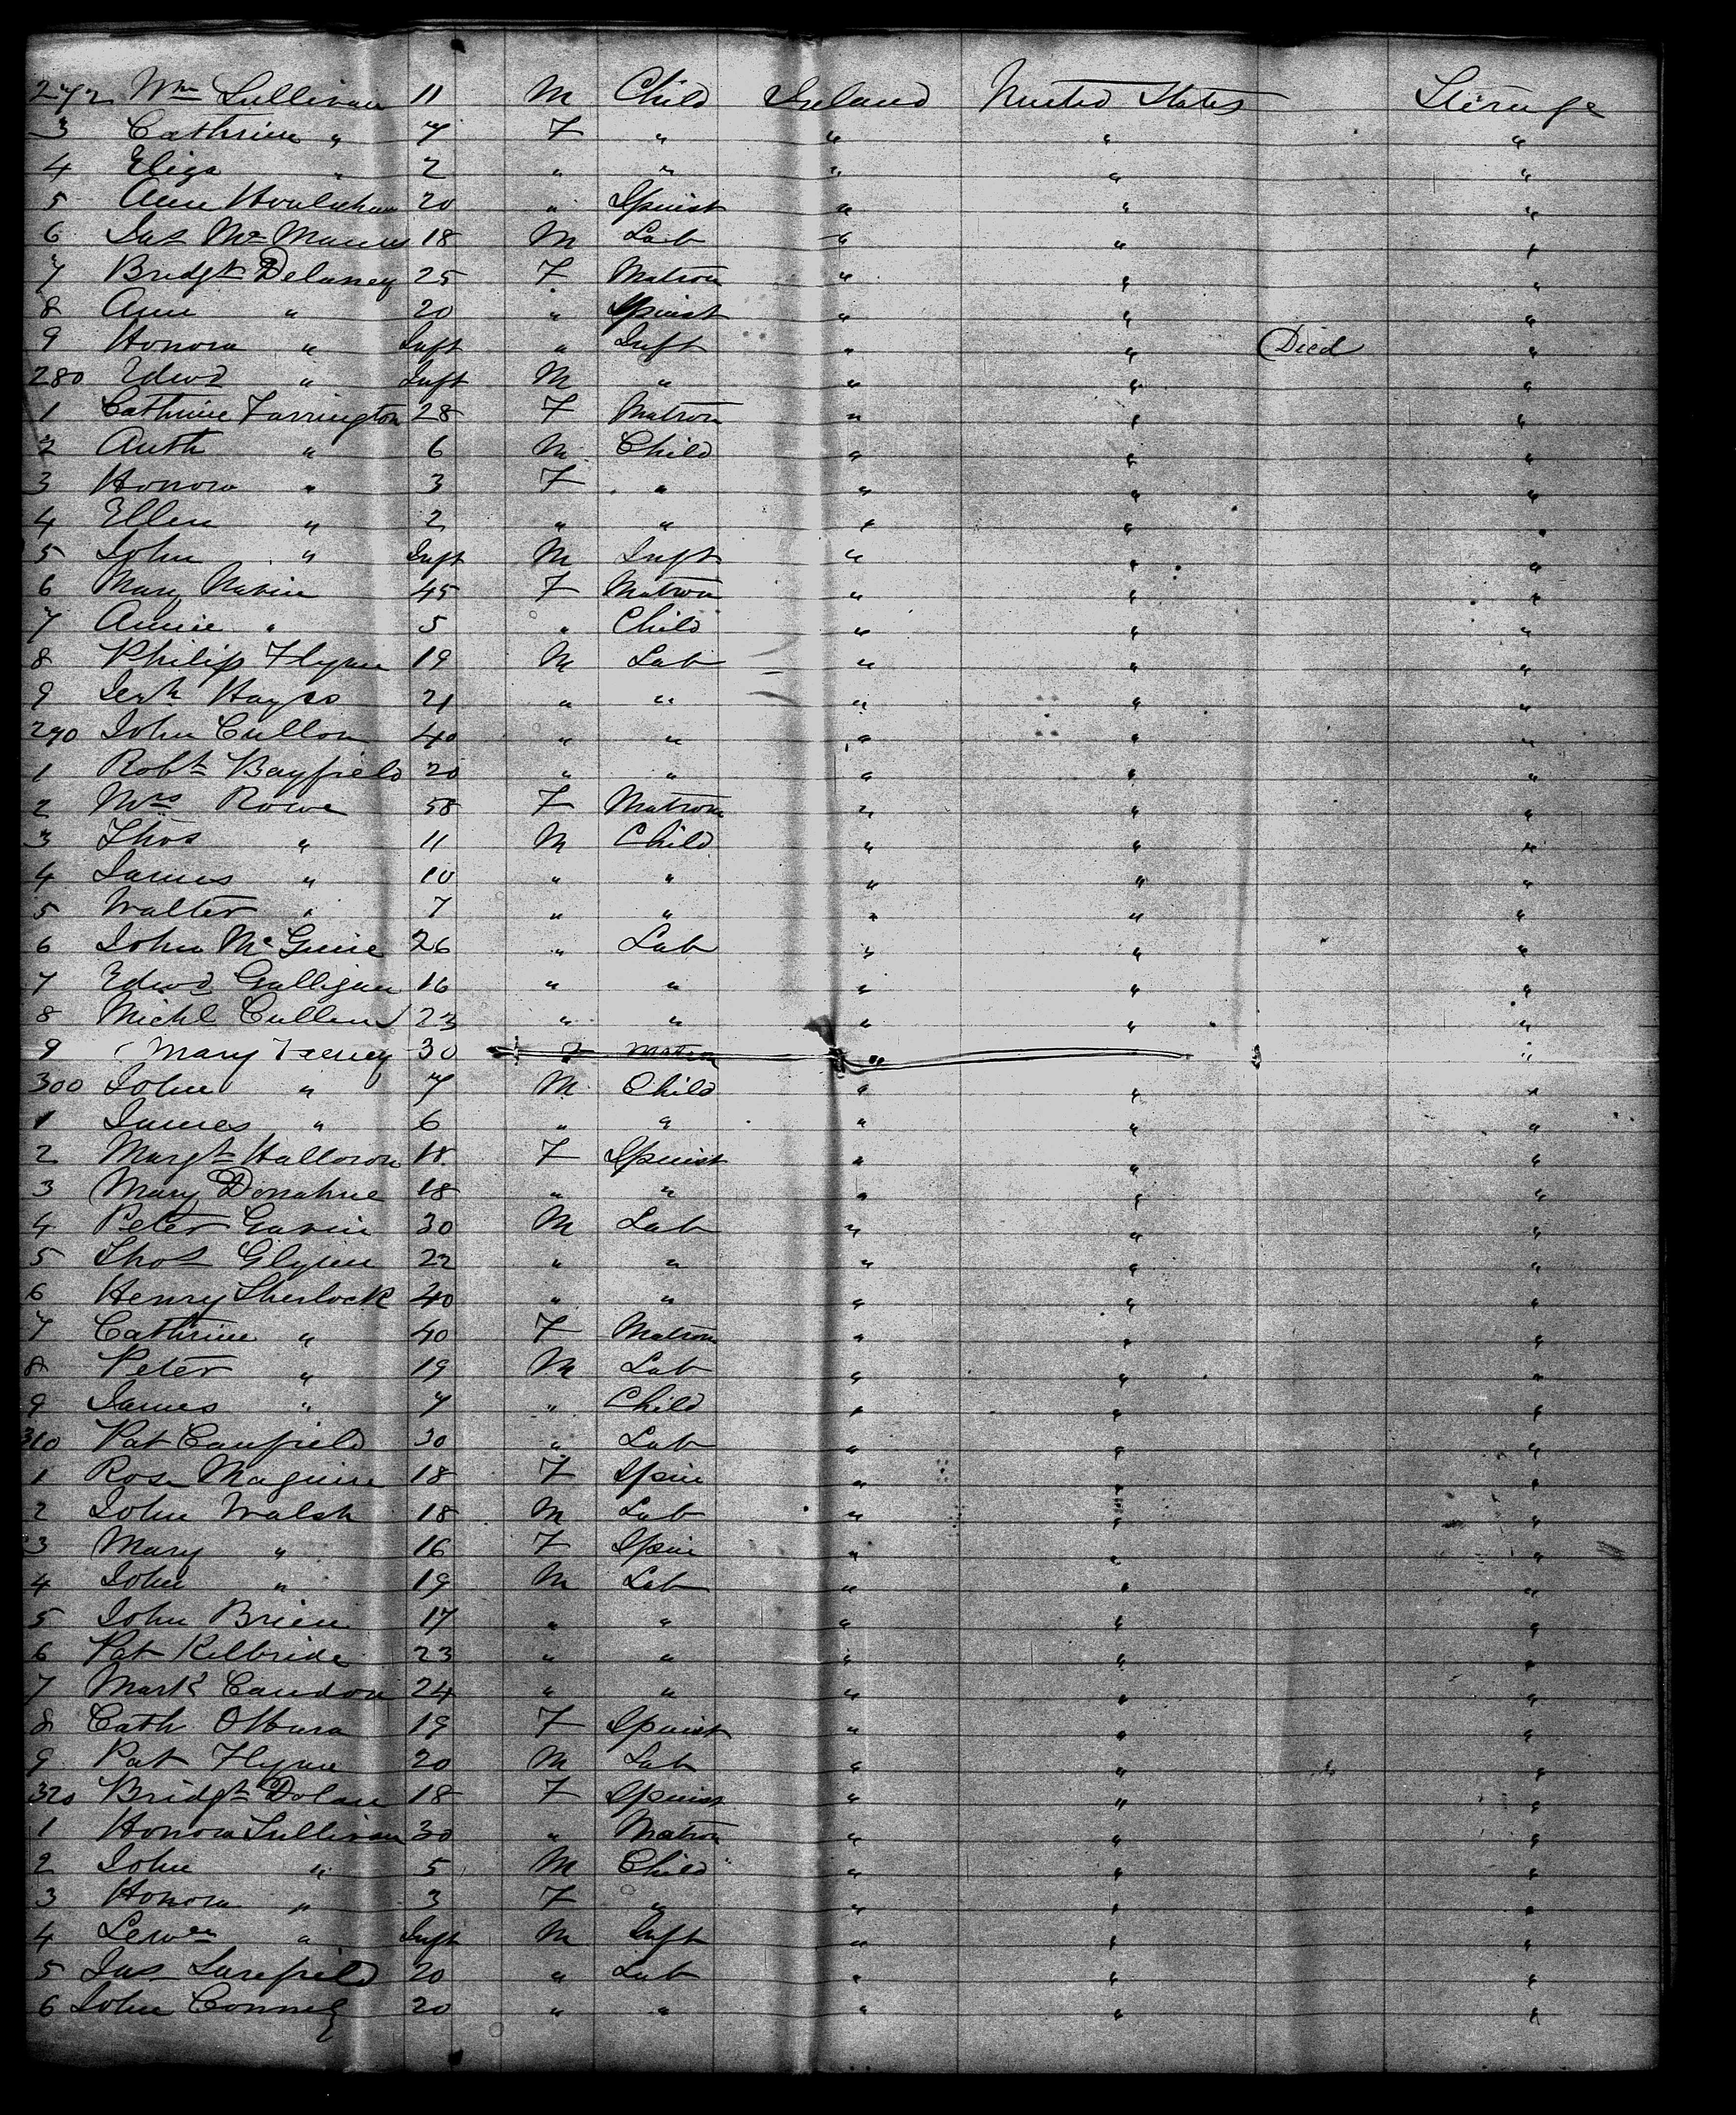 272 Wm Sullivan 11 M Child Ireland United States Steerage
3 Cathrine " 7 F " " " "
4 Eliza " 2 " " " " "
5 Ann Houlahan 20 " Spinst " " "
6 Jas McManus 18 M Lab " " "
7 Bridgt Delaney 25 F Matron " " "
8 Ann " 20 " Spinst " " "
9 Honora " Inft " Inft " " Died "
280 Edwd " Inft M " " " "
1 Cathrine Farrington 28 F Matron " " "
2 Anth " 6 M Child " " "
3 Honora " 3 F " " " "
4 Ellen " 2 " " " " "
5 John " Inft M Inft " " "
6 Mary Navin 45 F Matron " " "
7 Annie " 5 " Child " " "
8 Philip Flynn 19 M Lab " " "
9 Jerh Hayes 21 " " " " "
290 John Cullon 40 " " " " "
1 Robt Bayfield 20 " " " " "
2 Mrs Rowe 58 F Matron " " "
3 Thos " 11 M Child " " "
4 James " 10 " " " " "
5 Walter " 7 " " " " "
6 John McGuire 26 " Lab " " "
7 Edwd Galligan 16 " " " " "
8 Michl Cullen 23 " " " " "
9 Mary Feeney 30 F Matron " "
300 John " 7 M Child " " "
1 James " 6 " " " " "
2 Margt Halloron 18 F Spinst " " "
3 Mary Donahue 18 " " " " "
4 Peter Gavin 30 M Lab " " "
5 Thos Glynn 22 " " " " "
6 Henry Sherlock 40 " " " " "
7 Cathrine " 40 F Matron " " "
8 Peter " 19 M Lab " " "
9 James " 7 " Child " " "
310 Pat Canfield 30 " Lab " " "
1 Rose Maguire 18 F Spin " " "
2 John Walsh 18 M Lab " " "
3 Mary " 16 F Spin " " "
4 John " 19 M Lab " " "
5 John Brien 17 " " " " "
6 Pat Kilbride 23 " " " " "
7 Mark Candon 24 " " " " "
8 Cath OHara 19 F Spinst " " "
9 Pat Flynn 20 M Lab " " "
320 Bridgt Dolan 18 F Spinst " " "
1 Honora Sullivan 30 " Matron " " "
2 John " 5 M Child " " "
3 Honora " 3 F " " " "
4 " Inft M Inft " " "
5 Jas 20 " Lab " " "
6 John Connely 20 " " " " "